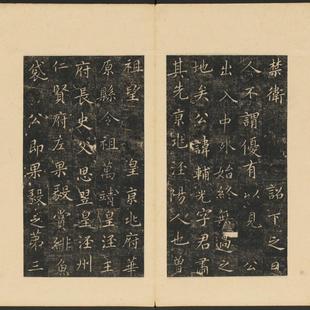 禁衛 詔下之日
人不謂優有以見公
出入中外始終無過之
地矣公諱輔光字君肅
其先京兆涇陽人也曾
祖望皇京兆府華
原縣令祖萬靖皇涇王
府長史父思翌皇涇州
仁賢府左果毅賞緋魚
袋公即果毅之第三